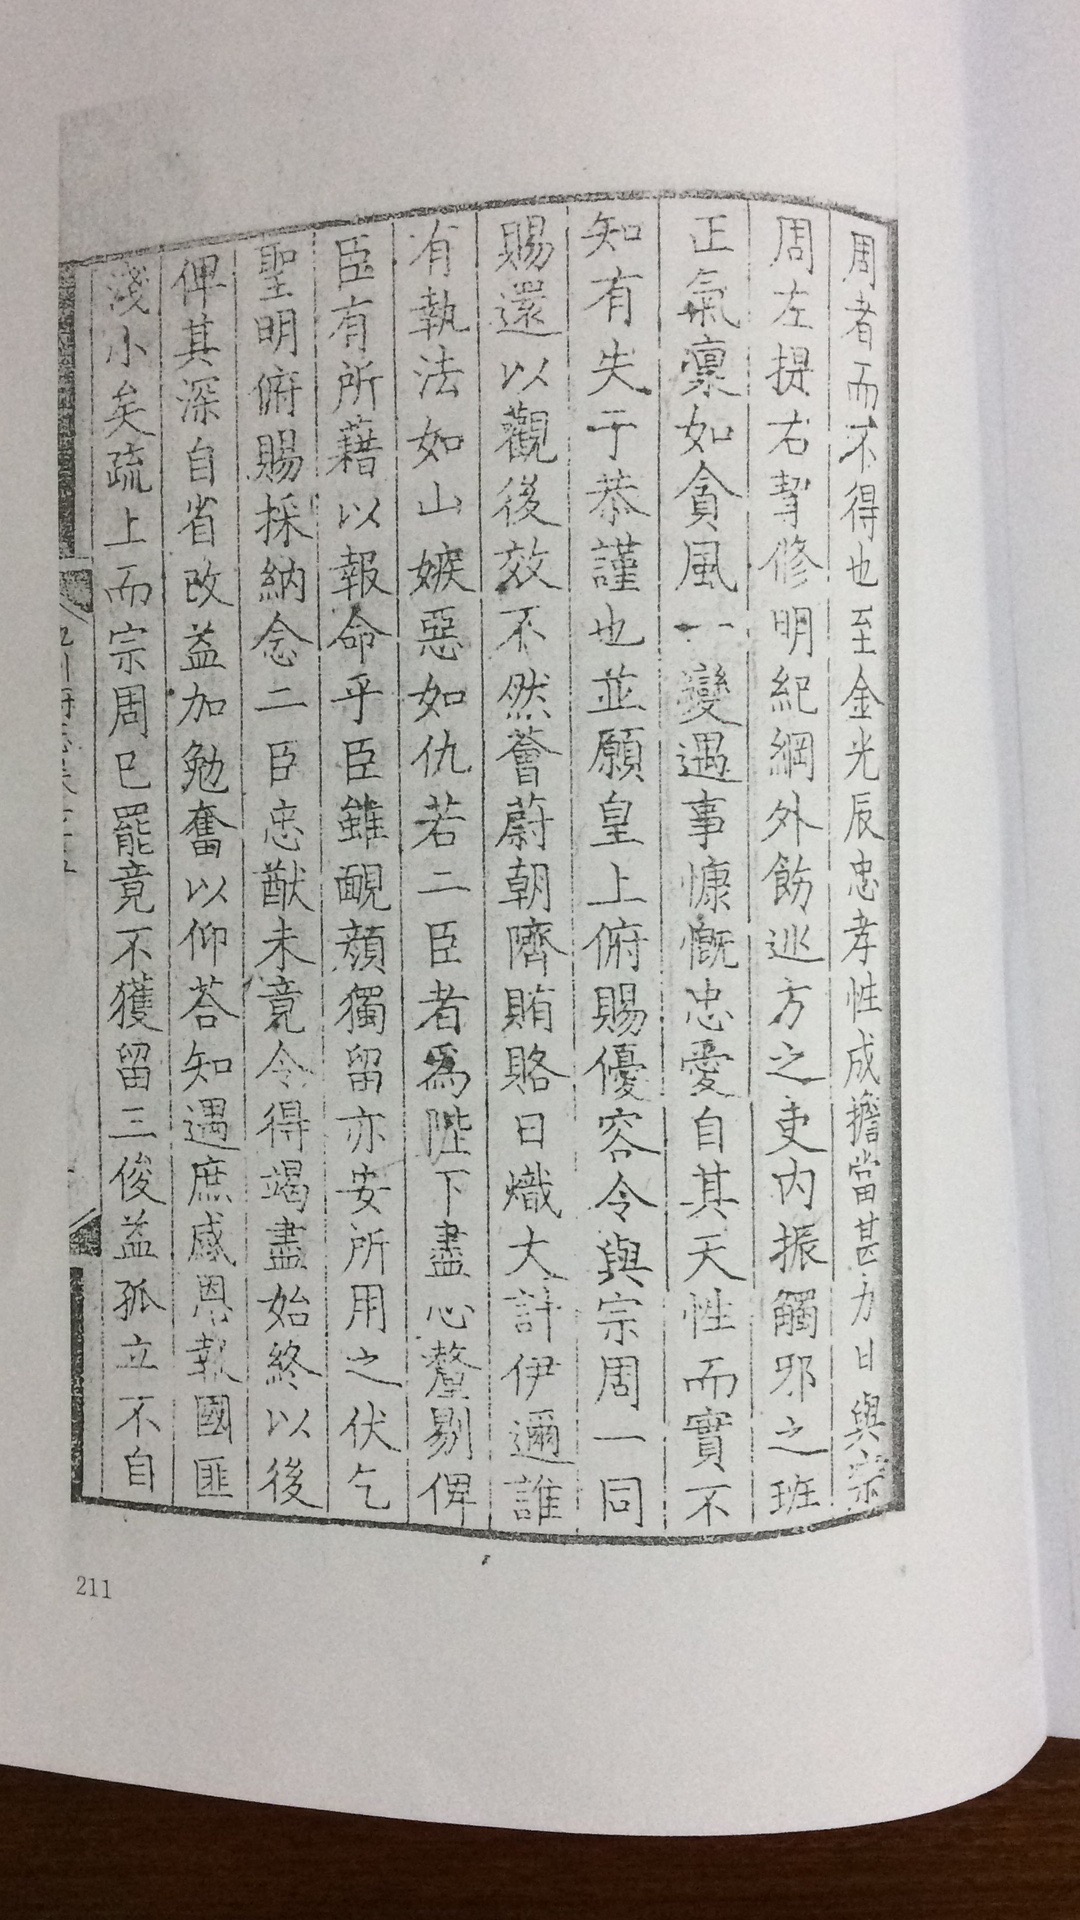 周者而不得也至金光辰忠孝性成擔當甚力日與宗
周左提右挈修明紀綱外飭巡方之吏內振觸邪之班
正氣稟如貪風一變遇事慷慨忠愛自其天性而實不
知有失于恭謹也並願皇上俯賜優容令與宗周一同
賜還以觀後效不然薈蔚朝隮賄賂日熾大計伊邇誰
有執法如山嫉惡如仇若二臣者為陛下盡心釐剔俾
臣有所藉以報命乎臣雖靦顏獨留亦安所用之伏乞
聖明俯賜採納念二臣忠猷未竟令得竭盡始終以後
俾其深自省改益加勉奮以仰荅知遇庶感恩報國匪
淺小矣疏上而宗周已罷竟不獲留三俊益孤立不自
211